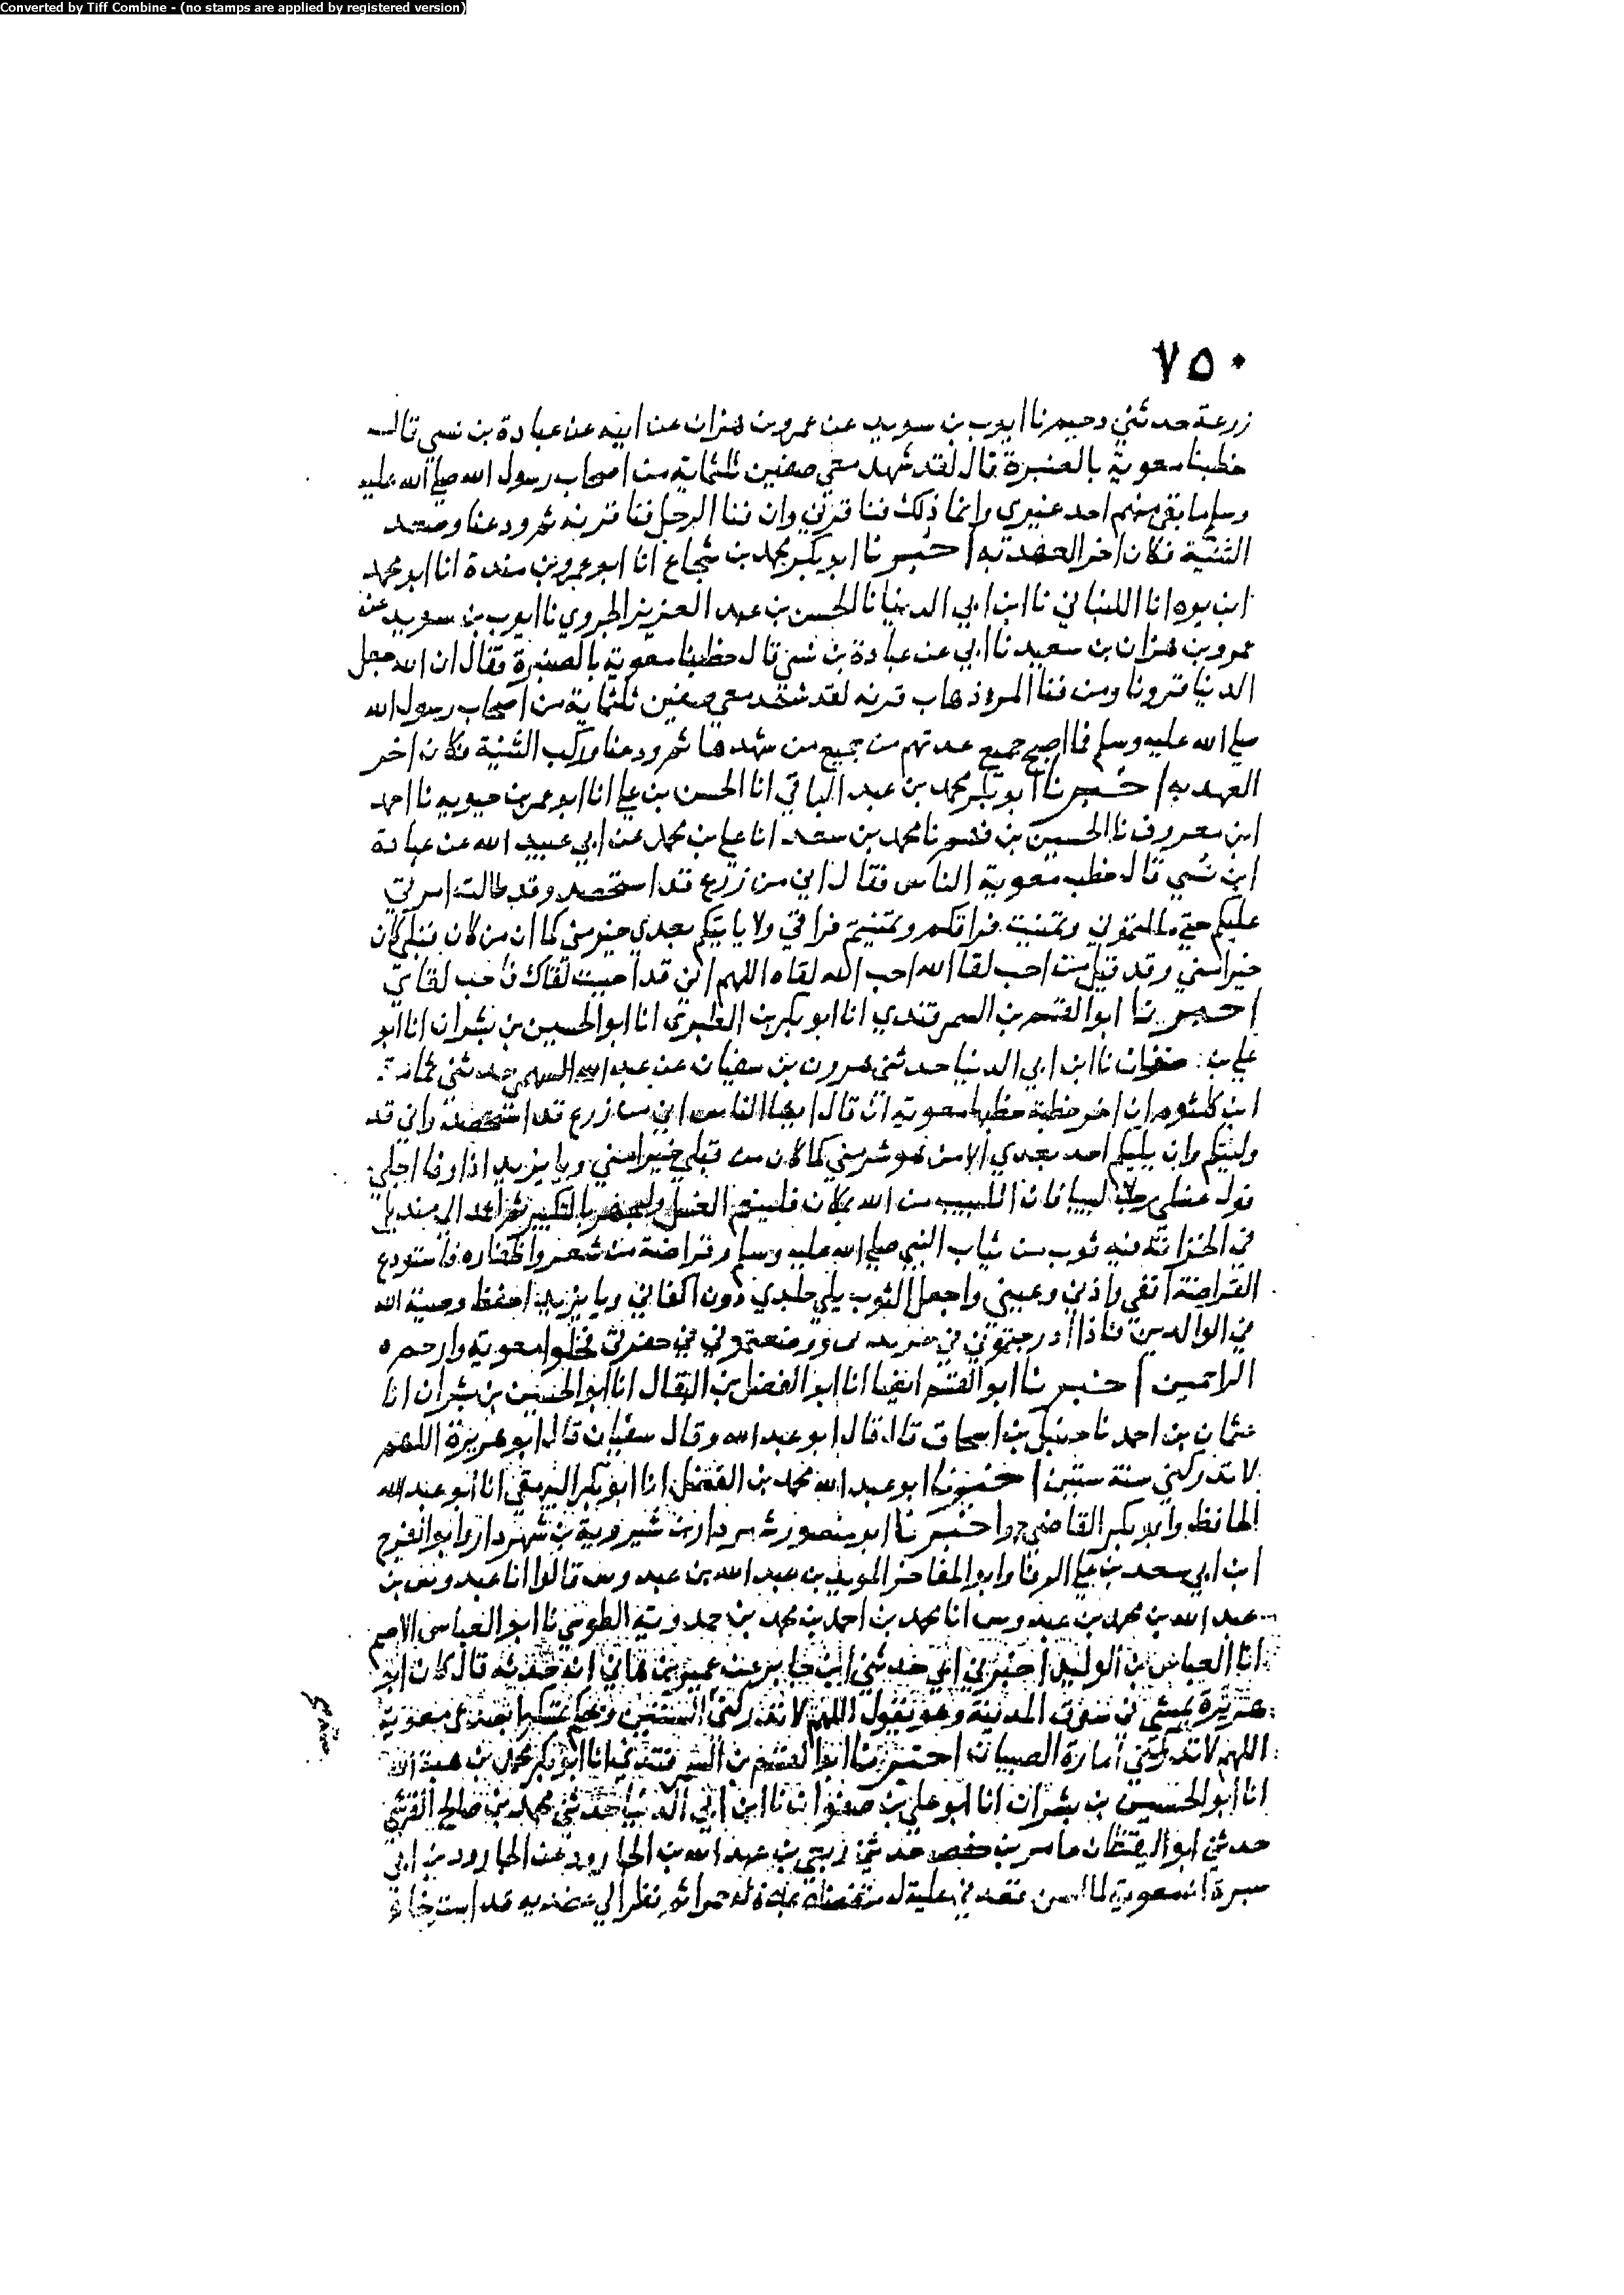 Converted by Tiff Combine - (no stamps are applied by registered version)
٧٥٠
زرعة حدثني دحيم نا ايوب بن سويد عن عمرو بن هزان عن ابيه عن عبادة بن نسي قال
خطبنا معوية بالصنبرة قال لقد شهد معي صفين ثلثماية من اصحاب رسول الله صلى الله عليه
وسلم ما بقي منهم احد غيري وانما ذلك فنا قرني وان فنا الرجل فنا قرنه ثم ودعنا وصعد
الثنية فكان اخر العهد به اخبرنا ابو بكر محمد بن شجاع انا ابو عمرو بن مندة انا ابو محمد
ابن يوه انا اللنباني نا ابن ابي الدنيا نا الحسن بن عبد العزيز الجروي نا ايوب بن سويد عن
عمرو بن هزان بن سعيد نا ابي عن عبادة بن نسي قال خطبنا معوية بالصنبرة فقال ان الله جعل
الدنيا قرونا ومن فنا المرء ذهاب قرنه لقد شهد معي صفين ثلثماية من اصحاب رسول الله
صلى الله عليه وسلم فما اصبح جميع عدتهم من جميع من شهدها ثم ودعنا وركب الثنية فكان اخر
العهد به اخبرنا ابو بكر محمد بن عبد الباقي انا الحسن بن علي انا ابو عمر بن حيويه نا احمد
ابن معروف نا الحسين بن فهم نا محمد بن سعد انا علي بن محمد عن ابي عبيد الله عن عبادة
ابن نسي قال خطب معوية الناس فقال اني من زرع قد استحصد وقد طالت امرتي
عليكم حتى مللتموني وتمنيت فراقكم وتمنيتم فراقي ولا ياتيكم بعدي خير مني كما ان من كان قبلي كان
خيرا مني وقد قيل من احب لقا الله احب الله لقاه اللهم اني قد احببت لقاك فاحب لقاي
اخبرنا ابو القسم بن السمرقندي انا ابو بكر بن الطبري انا ابو الحسين بن بشران انا ابو
علي بن صفوان نا ابن ابي الدنيا حدثني هرون بن سفيان عن عبد الله السهمي حدثني ثمامة
ابن كلثوم ان اخر خطبة خطبها معوية ان قال ايها الناس اني من زرع قد استحصد واني قد
وليتكم وان يليكم احد بعدي الا من هو شر مني كما كان من قبلي خيرا مني ويا يزيد اذا وفا اجلي
فول غسلي رجلا لبيبا فان اللبيب من الله بمكان فلينعم الغسل وليجهر بالتكبير ثم اعمد الى منديل
في الخزانة فيه ثوب من ثياب النبي صلى الله عليه وسلم وقراضة من شعره واظفاره فاستودع
القراضة انفي واذني وعيني واجعل الثوب يلي جلدي دون اكفاني ويا يزيد احفظ وصية الله
في الوالدين فاذا ادرجتموني في ووضعتموني في حفرتي فخلوا معوية وارحم
الراحمين اخبرنا ابو القسم ايضا انا ابو الفضل بن البقال انا ابو الحسين بن بشران انا
عثمان بن احمد نا حنبل بن اسحاق قال قال ابو عبد الله وقال سفيان قال ابو هريرة اللهم
لا تدركني سنة ستين اخبرنا ابو عبد الله محمد بن الفضل انا ابو بكر البيهقي انا ابو عبد الله
الحافظ وابو بكر القاضي ح واخبرنا ابو منصور شهردار بن شيروية بن شهردار وابو الفرج
ابن ابي سعد بن علي الوفا وابو المفاخر المويد بن عبد الله بن عبدوس قالوا انا عبدوس بن
عبد الله بن محمد بن عبدوس انا محمد بن احمد بن محمد بن حمدوية الطوسي نا ابو العباس الاصم
انا العباس بن الوليد اخبرني ابي حدثني ابن جابر عن عمير بن هاني انه حدثه قال كان ابو
هريرة يمشي في سوق المدينة وهو يقول اللهم لا تدركني سنة ستين ويحكم تمسكوا بصدغي معوية
اللهم لا تدركني امارة الصبيان اخبرنا ابو القسم بن السمرقندي انا ابو بكر محمد بن هبة الله
انا ابو الحسين بن بشران انا ابو علي بن صفوان نا ابن ابي الدنيا حدثني محمد بن صالح القرشي
حدثني ابو اليقظان عامر بن حفص حدثني ربعي بن عبد الله بن الجارود عن الجارود بن ابي
سبرة ان معوية لما اسن قعد في علية له حمرا ثم نظر الى عضديه قد